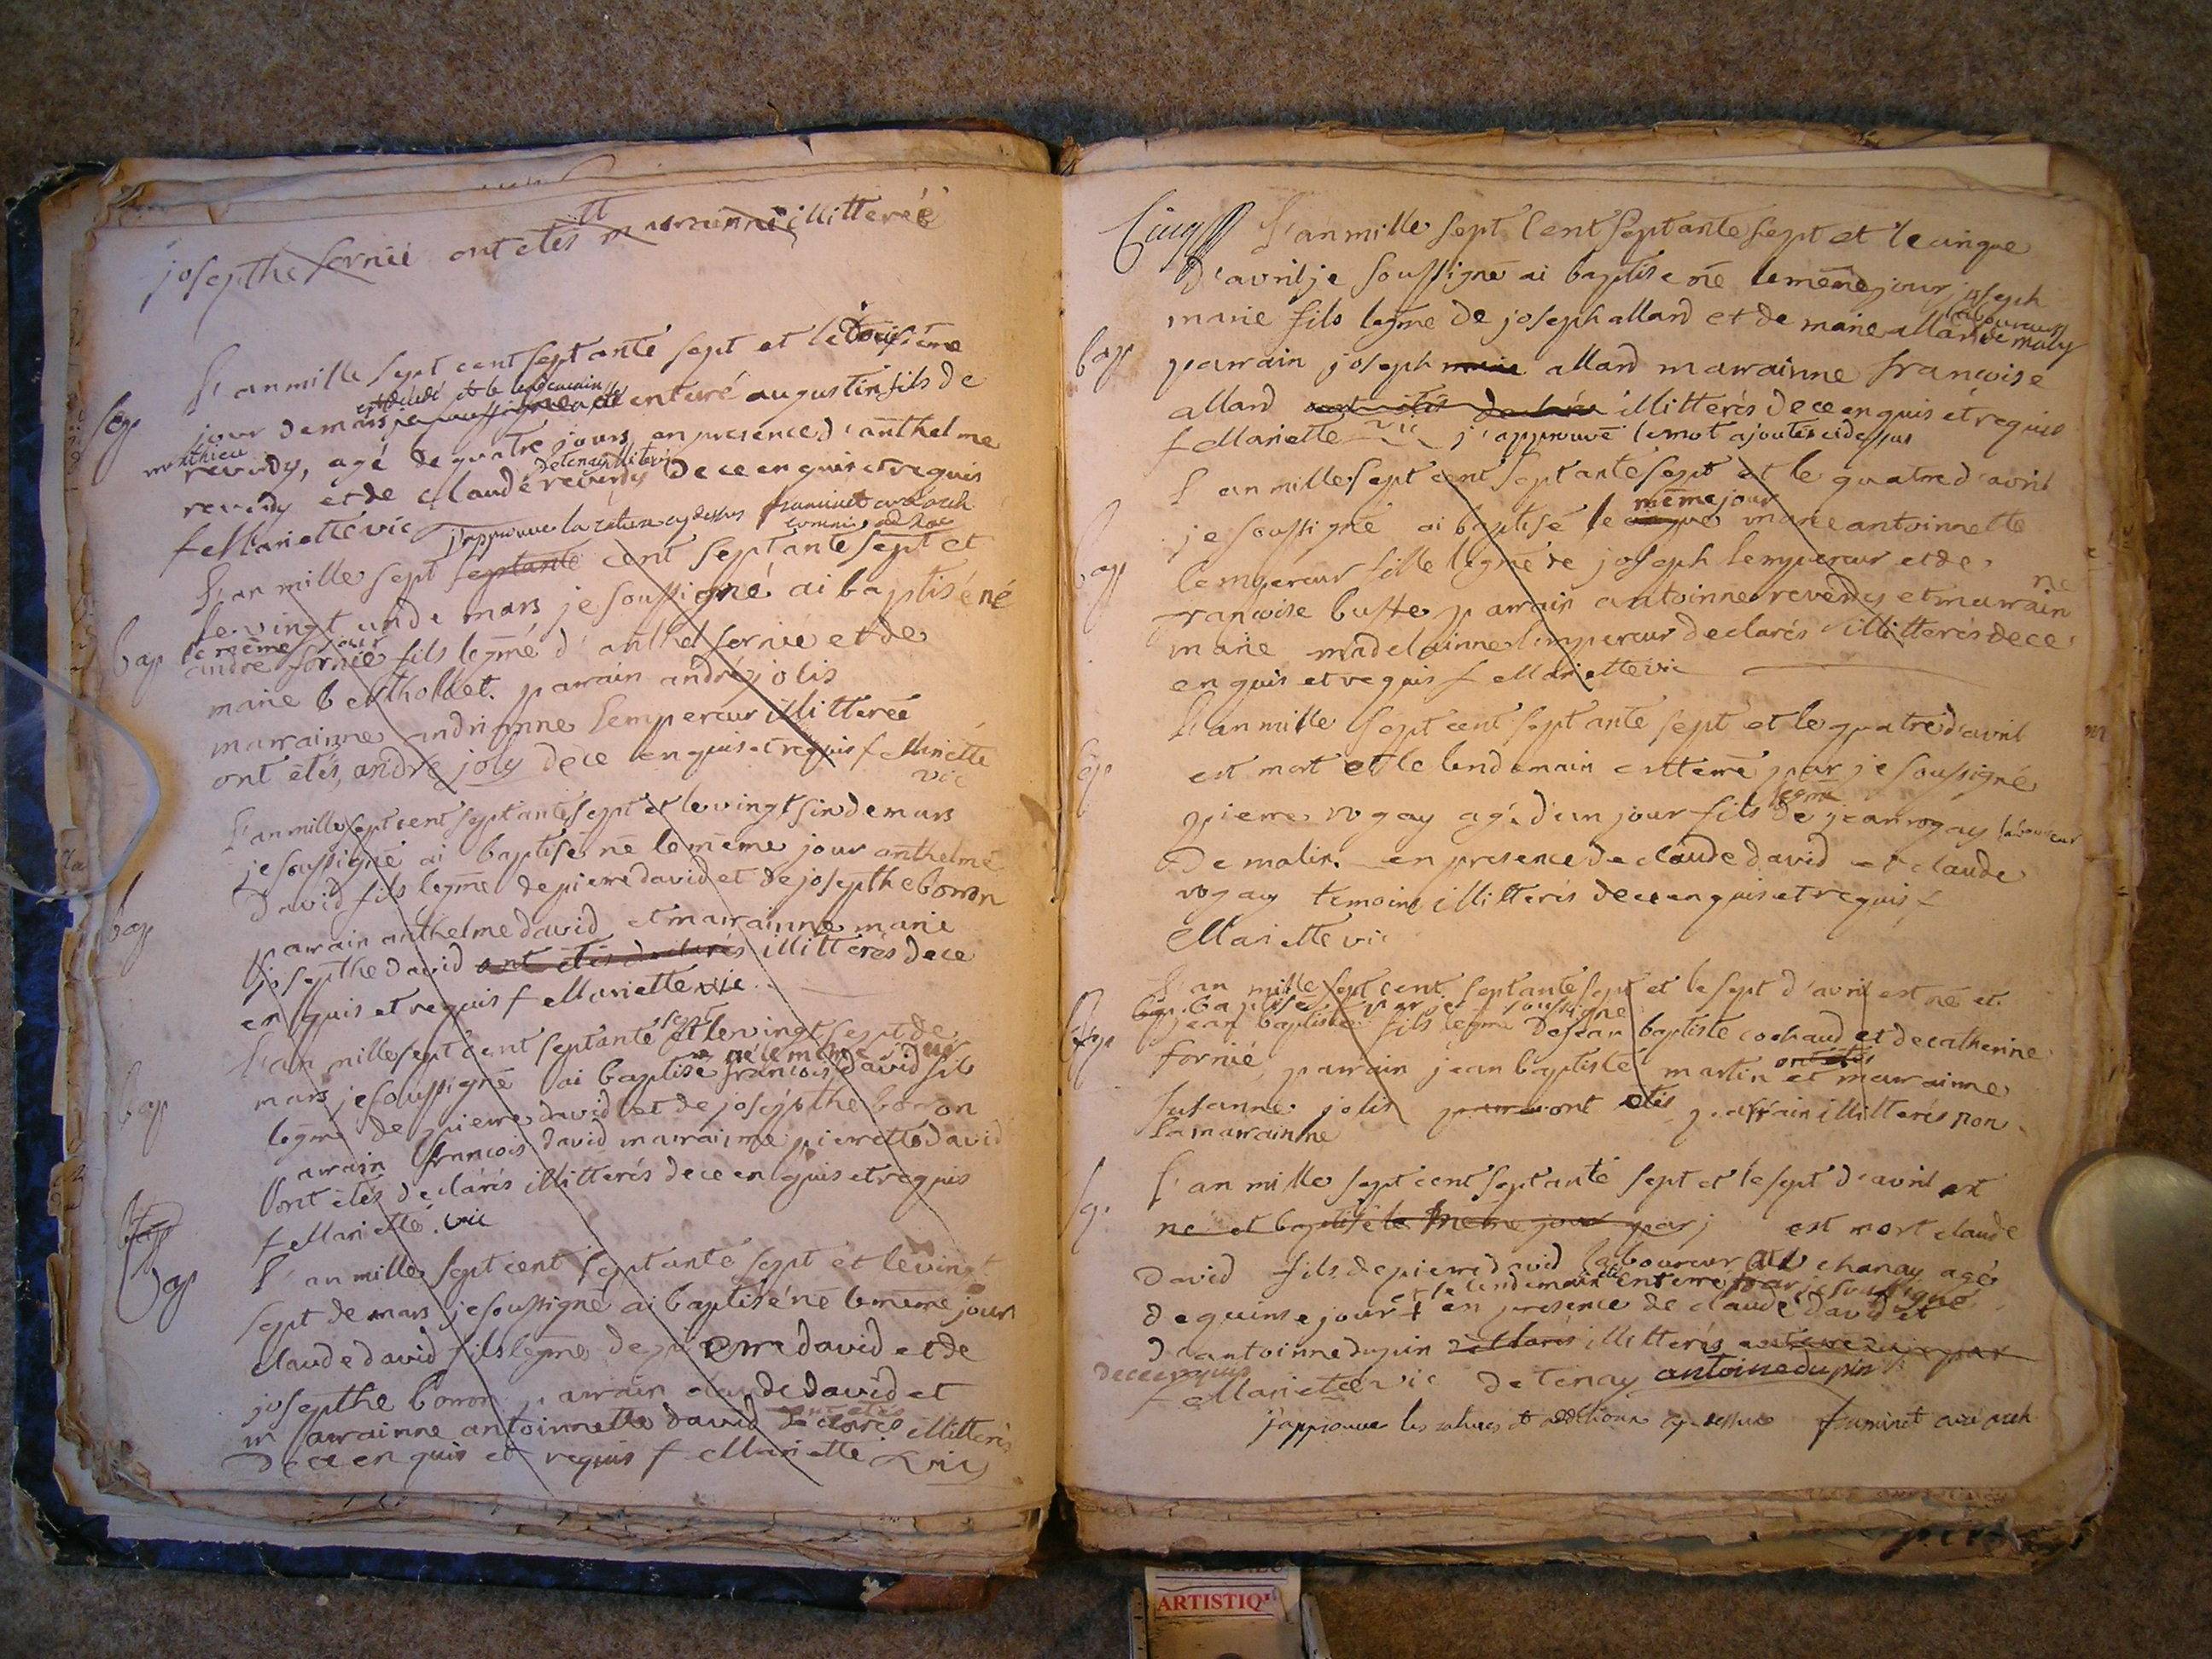 josepthe fornié ont etés m marainne illitereé
L'an mille sept cent septante sept et le troisieme
sep
est decedé et le lendemain
jour de mars je soussigné a été enteré augustin fils de
mathieu
reverdy, agé de quatre jours en presence d'anthelme
de tenay illiterés
reverdy et de claude reverdy de ce enquis et requis
f Mariette vic j'approuve la rature cy dessus framinet curé arch
commis ad hoc
L'an mille sept septante cent septante sept et
le vingt un de mars je soussigné ai baptisé né
bap
le même jour
andre fornié fils legme d'anthel fornié et de
marie berthollet. parain andré jolis
marainne andrianne lempereur illitereé
ont etés, andre joly de ce enquis et requis f Mariette
vic
L'an mille sept cent septante sept et le vingt sin de mars
je soussigné ai baptisé né le même jour anthelme
David fils legme de pierre david et de josepthe borron
bap
parain anthelme david et marainne marie
josepthe David ont etés declarés illitterés de ce
enquis et requis f Mariette vic
sept
L'an mille sept cent septante et le vingt sept de
né le même jour
bap
mars je soussigné ai baptisé francois david fils
legme de pierre david et de josepthe borron
parain francois david marainne pierrette david
ont etés declarés illitterés de ce enquis et requis
f Mariette. vic
bap
L'an mille sept cent septante sept et le vingt
bap
sept de mars je soussigné ai baptisé né le même jour
claude david fils legme de pierre david et de
josepthe borron parain claude david et
ont etés
marainne antoinnette david declarés illitterés
de ce enquis et requis f Mariette vic
L'an mille sept cent septante sept et le cinque
d'avril je soussigné ai baptisé né le même jour joseph
marie fils legme de joseph allard et de marie allard
laboureur
de malix
bap
parain joseph marie allard marainne francoise
allard ont etés declarés illitterés de ce enquis et requis
f Mariette vic j'approuve le mot ajoutés ci dessus
L'an mille sept cent septante sept et le quatre d'avril
même jour
je soussigné ai baptisé le cinque marie antoinnette
bap
lempereur fille legme de joseph lempereur et de
francoise buffe parain antoinne reverdy et marain
ne
marie madelainne lempereur declarés illitterés de ce
enquis et requis f Mariette vic
L'an mille sept cent septante sept et le quatre d'avril
sep
est mort et le lendemain entterré par je soussigné
legme
pierre rogay agé d'un jour fils de jean rogay laboureur
de malix. en presence de claude david et claude
rogay temoins illitterés de ce enquis et requis f
Mariette vic
L'an mille sept cent septante sept et le sept d'avril est né et
bap. baptisé par je soussigné
bap
jean baptiste fils legme de jean baptiste cochaud et de catherine
fornié parain jean baptiste martin et marainne
ont etés
susanne jolis parai ont etés parrain illitterés non
la marainne
L'an mille sept cent septante sept et le sept d'avril est
sep.
né et baptisé le même jour par j est mort claude
David fils de pierre david laboureur au chanay agé
et le lendemain été enterré par je soussigné
de quinse jour + en presence de claude david et
d'antoinne dupin declarés illitterés enterré du je par
de ce enquis
f Mariette vic de tenay antoine dupin
j'approuve les ratures et additions cy dessus framinet curé arch
ARTISTIQU